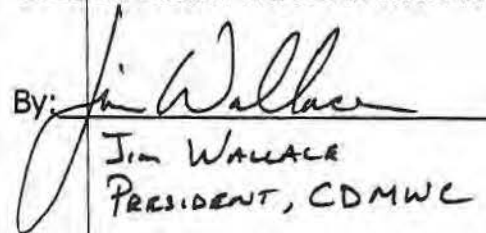 By: Jim Wallace
Jim WALLACE
PRESIDENT, CDMWC